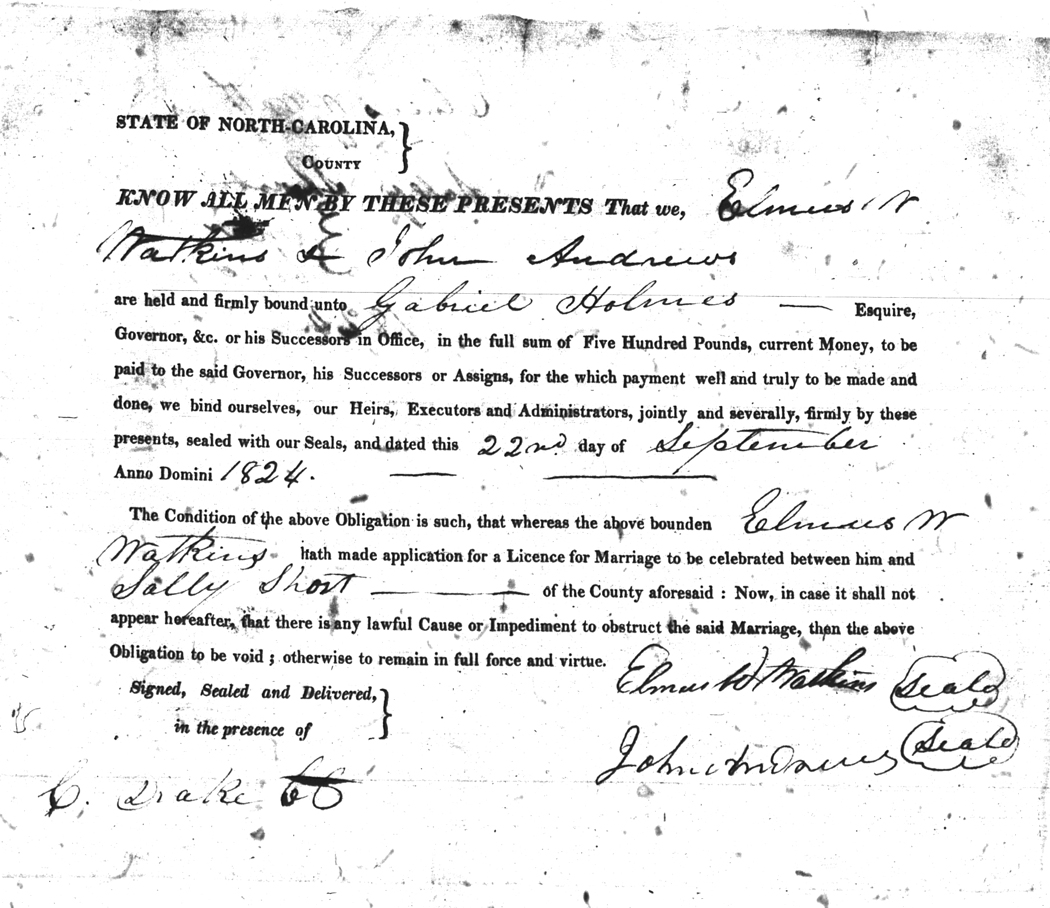 STATE OF NORTH-CAROLINA, }
COUNTY
KNOW ALL MEN BY THESE PRESENTS That we, Elmus W
Watkins & John Andrews
are held and firmly bound unto Gabriel Holmes — Esquire,
Governor, &c. or his Successors in Office, in the full sum of Five Hundred Pounds, current Money, to be
paid to the said Governor, his Successors or Assigns, for the which payment well and truly to be made and
done, we bind ourselves, our Heirs, Executors and Administrators, jointly and severally, firmly by these
presents, sealed with our Seals, and dated this 22nd day of September
Anno Domini 1824.
The Condition of the above Obligation is such, that whereas the above bounden Elmus W
Watkins hath made application for a Licence for Marriage to be celebrated between him and
Sally Short — of the County aforesaid : Now, in case it shall not
appear hereafter, that there is any lawful Cause or Impediment to obstruct the said Marriage, then the above
Obligation to be void ; otherwise to remain in full force and virtue.
Elmus W Watkins Seal
Signed, Sealed and Delivered, }
in the presence of
John Andrews Seal
C. Drake